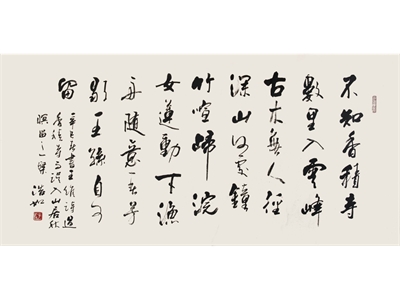 不知香積寺
數里入雲峰
古木無人徑
深山何處鐘
竹喧歸浣
女蓮動下漁
舟隨意春芳
歇王孫自可
留
書王維詩過
香積寺誤入山居秋
暝留之一